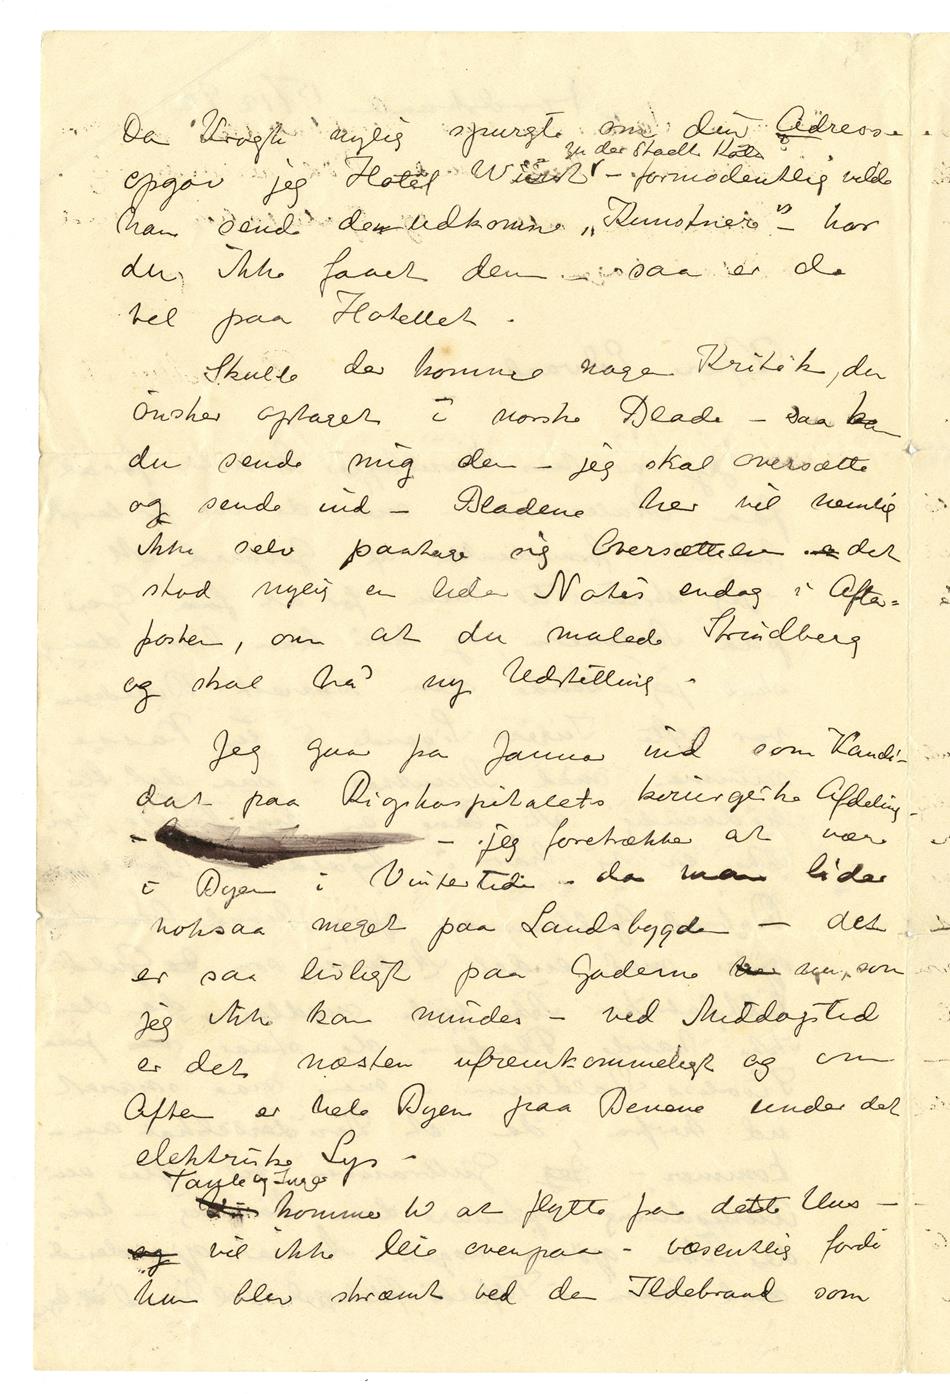 Da Kragh nylig spurgte om din Adresse
zu der Stadt Köln
opgav jeg Hotel – formodentlig vilde
han sende den udkomne „Kunstnere" – har
du ikke faaet den – saa er de
vel paa Hotellet.
Skulle der komme nogen Kritik, du
önsker optaget i norske Blade – saa kan
du sende mig den – jeg skal oversætte
og sende ind – Bladene her vil nemlig
ikke selv paatage sig Oversættelsen det
stod nylig en liden Notis endog i Aften=
posten, om at du malede Strindberg
og skal ha' ny Udstilling.
Jeg gaar fra Januar ind som Kandi-
dat paa Rigshospitalets kirurgiske Afdeling
– – jeg foretrækker at være
i Byen i Vintertiden – da man lider
noksaa meget paa Landsbygden – det
er saa livligt paa Gaderne nu, som
jeg ikke kan mindes – ved Middagstid
er det næsten ufremkommeligt og om
Aften er hele Byen paa Benene under det
elektriske Lys –
Tante og Inger
kommer til at flytte fra dette Hus –
og vil ikke leie ovenpaa – væsentlig fordi
hun blev skræmt ved den Ildebrand som